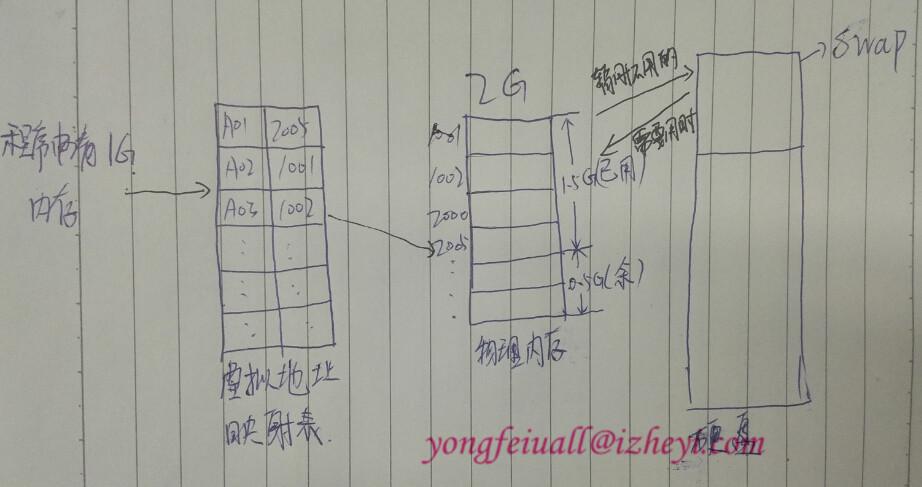 程序申请1G
内存
A01 2005
A02 1001
A03 1002
虚拟地址
映射表
2G
1001
1002
2000
2005
1.5G(已用)
0.5G(余)
物理内存
暂时不用的
需要用时
swap
硬盘
yongfeiuall@izheyi.com